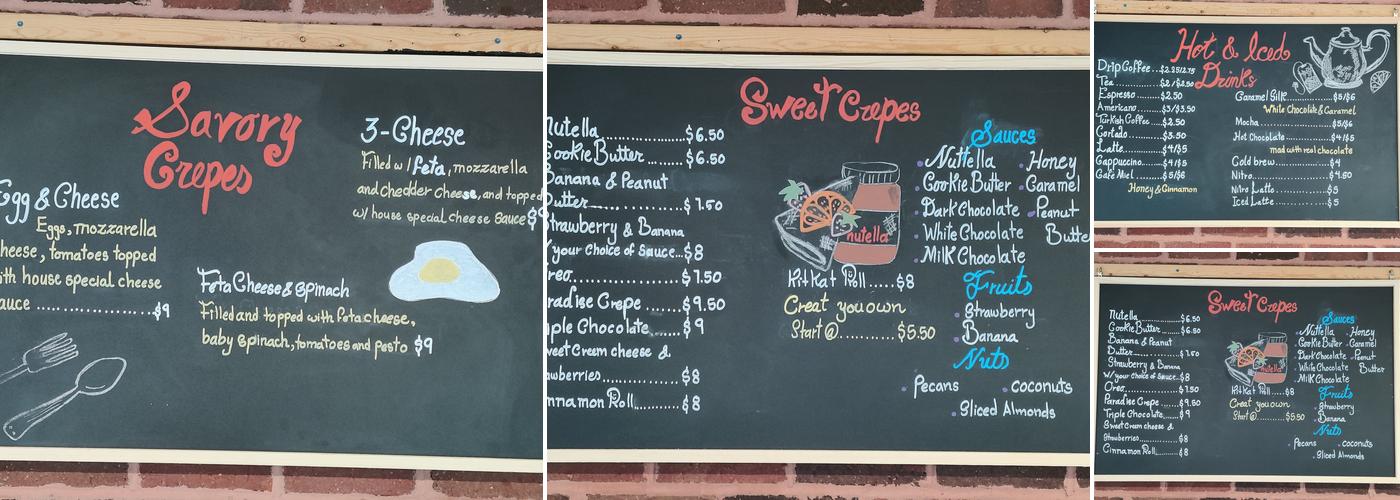 Savory
Crepes
Egg & Cheese
Eggs, mozzarella
cheese, tomatoes topped
with house special cheese
sauce ........................$9
3-Cheese
Filled w/ feta, mozzarella
and chedder cheese, and topped
w/ house special cheese Sauce $9
Feta Cheese & Spinach
Filled and topped with Feta cheese,
baby spinach, tomatoes and pesto $9
Sweet Crepes
Nutella ................ $6.50
Cookie Butter ........ $6.50
Banana & Peanut
Butter .................. $7.50
Strawberry & Banana
w/ your Choice of Sauce...$8
Oreo .................. $7.50
Paradise Crepe ....... $9.50
Triple Chocolate ..... $9
Sweet Cream cheese &
Strawberries .......... $8
Cinnamon Roll ....... $8
nutella
KitKat Roll ..... $8
Creat you own
Start @ .......... $5.50
Sauces
Nuttella
Honey
Cookie Butter
Caramel
Dark Chocolate
Peanut
Butter
White Chocolate
Milk Chocolate
Fruits
Strawberry
Banana
Nuts
Pecans
coconuts
Sliced Almonds
Hot & Iced
Drinks
Drip Coffee ...$2.25/2.75
Tea ............ $2/$2.50
Espresso ........ $2.50
Americano ....... $3/$3.50
Turkish Coffee .. $2.50
Cortado ......... $3.50
Latte ........... $4/$5
Cappuccino ...... $4/$5
Café Miel ....... $5/$6
Honey & Cinnamon
Caramel Silk .......... $5/$6
White Chocolate & Caramel
Mocha ................ $5/$6
Hot Chocolate ........ $4/$5
mad with real chocolate
Cold brew ............ $4
Nitro ................ $4.50
Nitro Latte .......... $5
Iced Latte ........... $5
Sweet Crepes
Nutella ................ $6.50
Cookie Butter ........ $6.50
Banana & Peanut
Butter ................ $7.50
Strawberry & Banana
w/ your choice of Sauce...$8
Oreo .................. $7.50
Paradise Crepe ....... $9.50
Triple Chocolate ..... $9
Sweet Cream cheese &
Strawberries .......... $8
Cinnamon Roll ....... $8
nutella
KitKat Roll ..... $8
Creat you own
Start @ .......... $5.50
Sauces
Nuttella
Honey
Cookie Butter
Caramel
Dark Chocolate
Peanut
Butter
White Chocolate
Milk Chocolate
Fruits
Strawberry
Banana
Nuts
Pecans
coconuts
Sliced Almonds